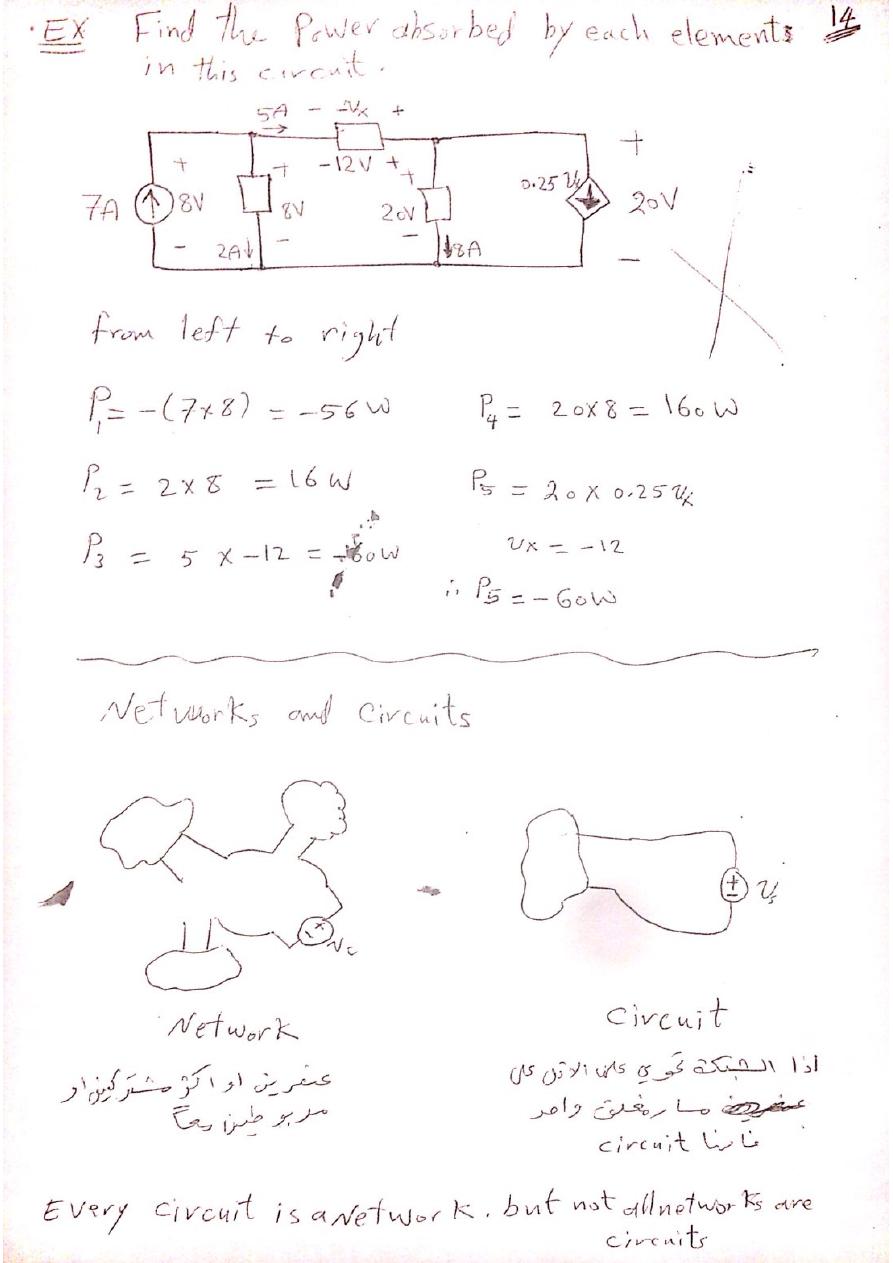 14
EX Find the Power absorbed by each elements
in this circuit.
5A - Vx +
- 12V +
7A + 8V - + 8V - 2A + 20V - 8A 0.25 Vx + 20V -
from left to right
P1 = -(7×8) = -56 W
P2 = 2×8 = 16 W
P3 = 5 × -12 = -60 W
P4 = 20×8 = 160 W
P5 = 20 × 0.25 Vx
Vx = -12
∴ P5 = - 60W
Networks and Circuits
Vs
Network
عنصرين او اكثر مشتركين او
مربوطين معاً
Circuit
اذا الشبكة تحوي على الاقل على
مسار مغلق واحد
circuit فانها
Every circuit is a Network. but not all networks are
circuits